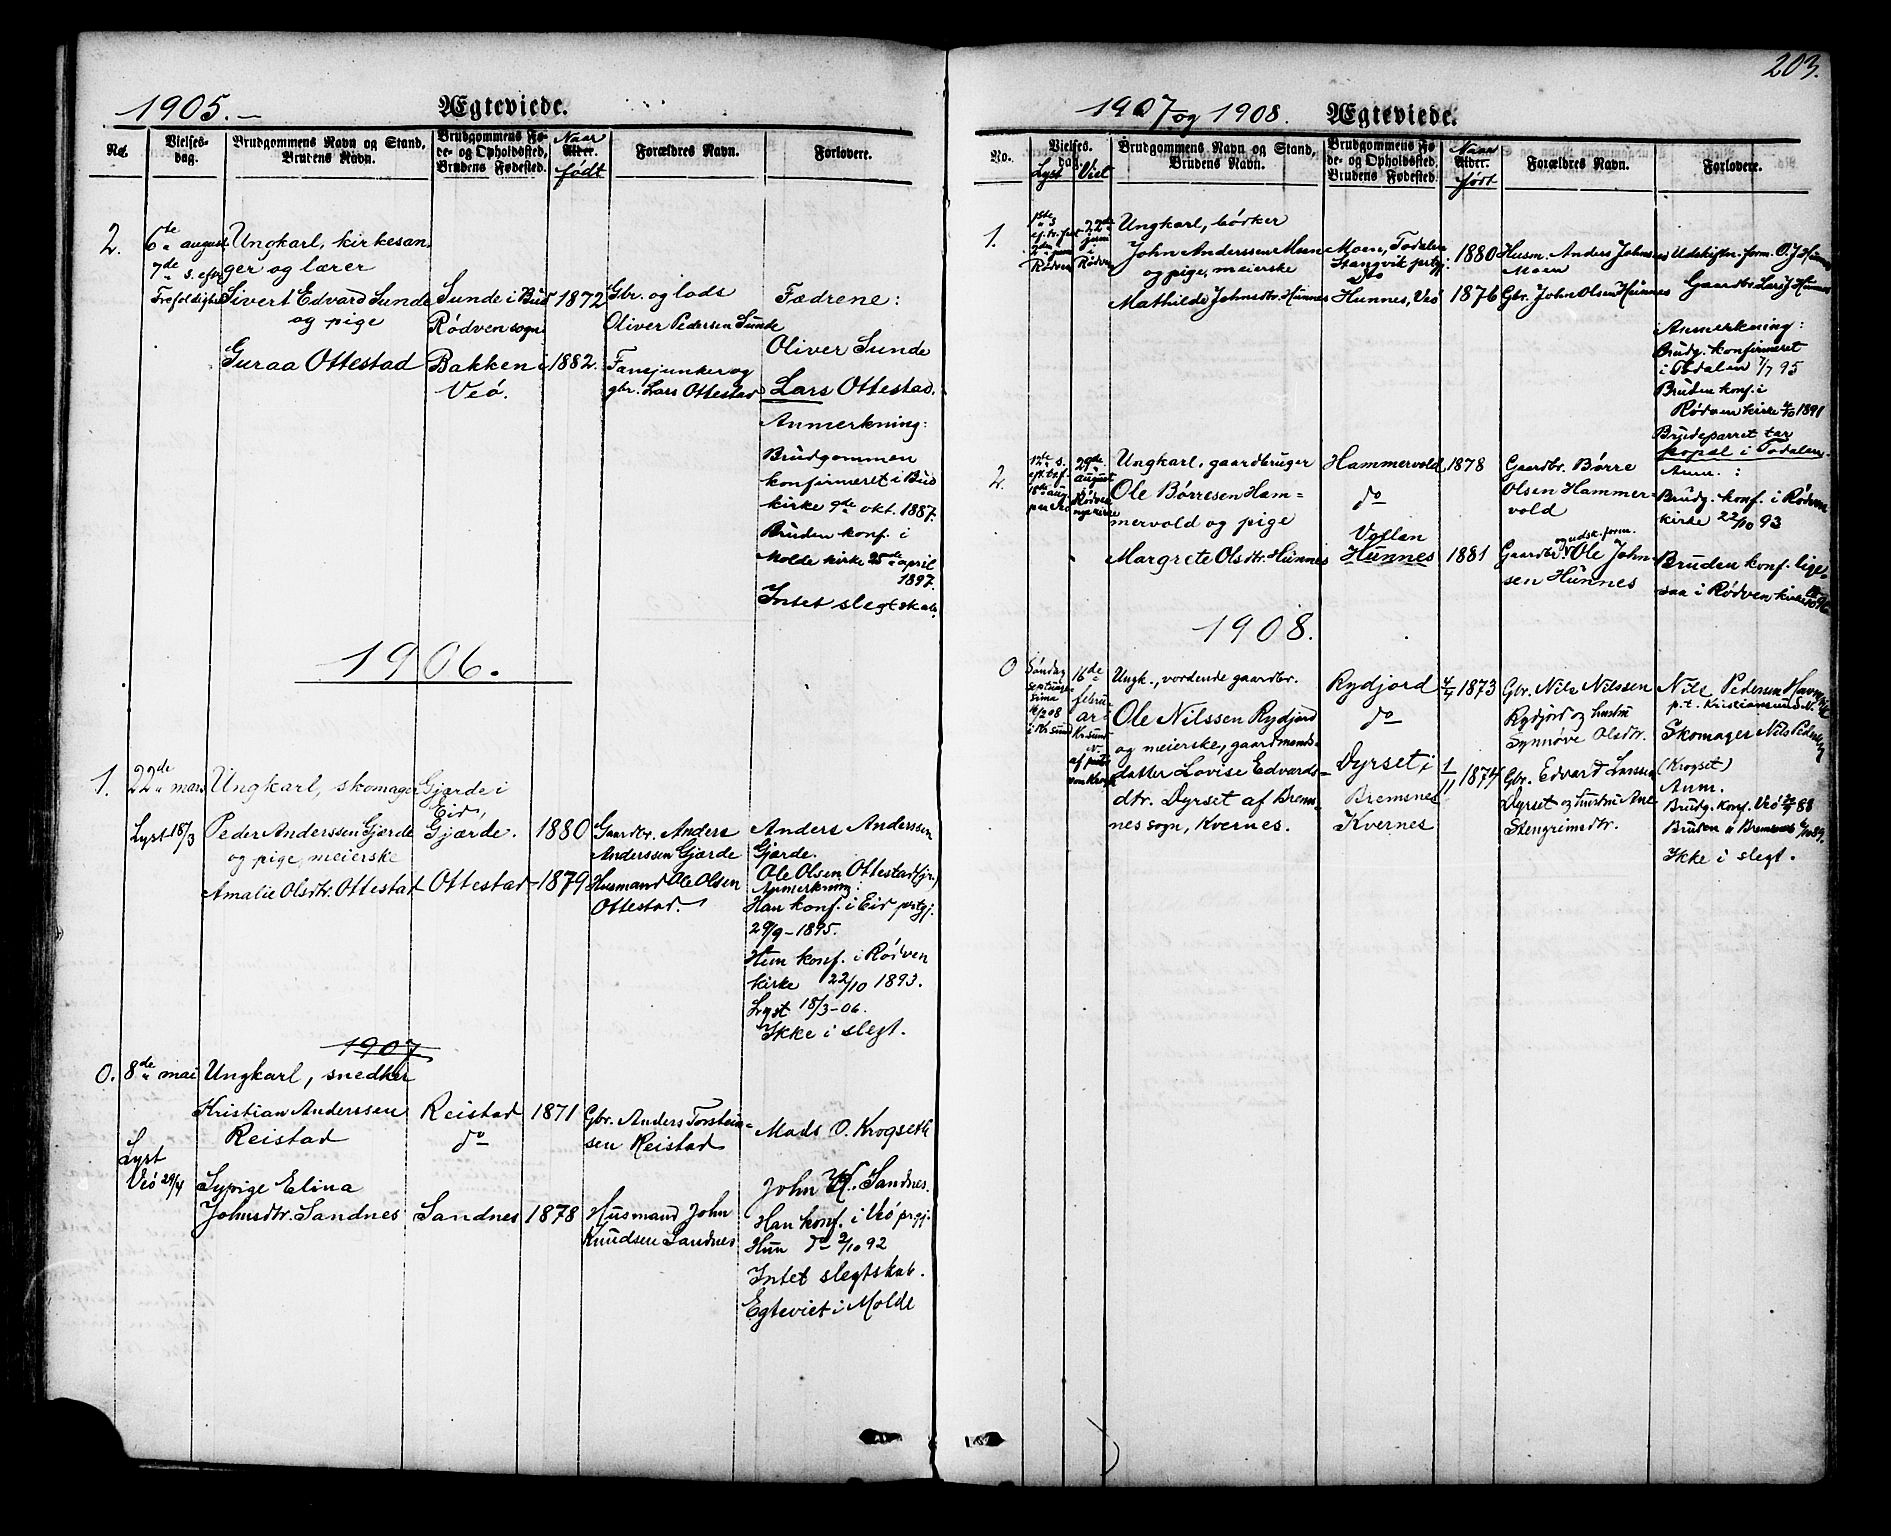 203.
1905.—
Ægteviede.
No.
Vielses-
dag.
Brudgommens Navn og Stand,
Brudens Navn.
Brudgommens Fø-
de- og Opholdssted,
Brudens Fødested.
Naar
Alder.
født
Forældres Navn.
Forlovere.
2.
6te august
7de s. efter
Trefoldighed
Ungkarl, kirkesan-
ger og lærer
Sivert Edvard Sunde
og pige
Guraa Ottestad
Sunde i Bud
Rødven sogn
Bakken i
Veø.
1872
1882.
Gbr. og lods
Oliver Pedersen Sunde
Fansjunker og
gbr. Lars Ottestad
Fædrene:
Oliver Sunde
Lars Ottestad.
Anmerkning:
Brudgommen
konfirmeret i Bud
kirke 9de okt. 1887.
Bruden konf. i
Molde kirke 25de april
1897.
Intet slegtskab.
1906.
1.
22de mars
Lyst 18/3
Ungkarl, skomager
Peder Anderssen Gjærde
og pige, meierske
Amalie Olsdtr. Ottestad
Gjærde i
Eid,
Gjærde.
Ottestad
1880
1879
Gaardbr. Anders
Anderssen Gjærde
Husmand Ole Olsen
Ottestad.
Anders Anderssen
Gjærde.
Ole Olsen Ottestad (jr.)
Anmerkning:
Han konf. i Eid prstgj.
29/9–1895.
Hun konf. i Rødven
kirke 22/10 1893.
Lyst 18/3–06.
Ikke i slegt.
1907
0.
8de mai
Lyst
Veø 29/4
Ungkarl, snedker
Kristian Anderssen
Reistad
Sypige Elina
Johnsdtr. Sandnes
Reistad
do
Sandnes
1871
1878
Gbr. Anders Torstein-
sen Reistad
Husmand John
Knudsen Sandnes
Mads O. Krogseth
John K. Sandnes.
Han konf. i Veø prgj.
Hun do 2/10 92
Intet slegtskab.
Egteviet i Molde
1907 og 1908.
Ægteviede.
No.
Vielses-
dag.
Lyst
Viet
Brudgommens Navn og Stand,
Brudens Navn.
Brudgommens Fø-
de- og Opholdssted,
Brudens Fødested.
Naar
Alder.
født
Forældres Navn.
Forlovere.
1.
1ste s.
ef. tr. fest
2den juni
Rødven
22de
juni
i
Rødven
Ungkarl, bødker
John Anderssen Moen
og pige, meierske
Mathilde Johnsdtr. Hunnes
Moen, Todalen
Stangvik prstgj.
do
Hunnes, Veø
1880
1876
Husm. Anders Johnsen
Moen
Gbr. John Olsen Hunnes
Udskiftn. form. O. J. Hunnes
Gaardbr. Lars J. Hunnes
Anmerkning:
Brudg. konfirmeret
i Todalen 7/7 95
Bruden konf. i
Rødven kirke 4/10 1891
Brudeparret tar
bopæl i Todalen.
2.
12te s.
eft. tref.
18de aug.
29de
august
i Rødven
nye kirke
Ungkarl, gaardbruger
Ole Børresen Ham-
mervold og pige
Margrete Olsdtr. Hunnes
Hammervold
do
Vollan
Hunnes
1878
1881
Gaardbr. Børre
Olsen Hammer-
vold
og udsk. form.
Gaardbr. Ole John-
sen Hunnes
Anm.:
Brudg. konf. i Rødven
kirke 22/10 93
Bruden konf. lige-
saa i Rødven kirke
1908.
0
Søndag
septuage-
sima
16/2 08
i Kr.sund
16de
febru-
ar i
Kr.sund
N.
af prest
Ungk., vordende gaardbr.
Ole Nilssen Rydjord
og meierske, gaardmands-
datter Lovise Edvards-
dtr. Dyrset af Brems-
nes sogn, Kvernes.
Rydjord
do
Dyrset i
Bremsnes
Kvernes
4/4 1873
1/11 1874
Gbr. Nils Nilssen
Rydjord og hustru
Synnøve Olsdtr.
Gbr. Edvard Larssen
Dyrset og hustru Ane
Stengrimsdtr.
Nils Pedersen
p.t. Kristianssund N.
Skomager Nils Pedersen
(Krogset)
Anm.
Brudg. konf. Veø 88
Bruden i Bremsnes 89.
Ikke i slegt.